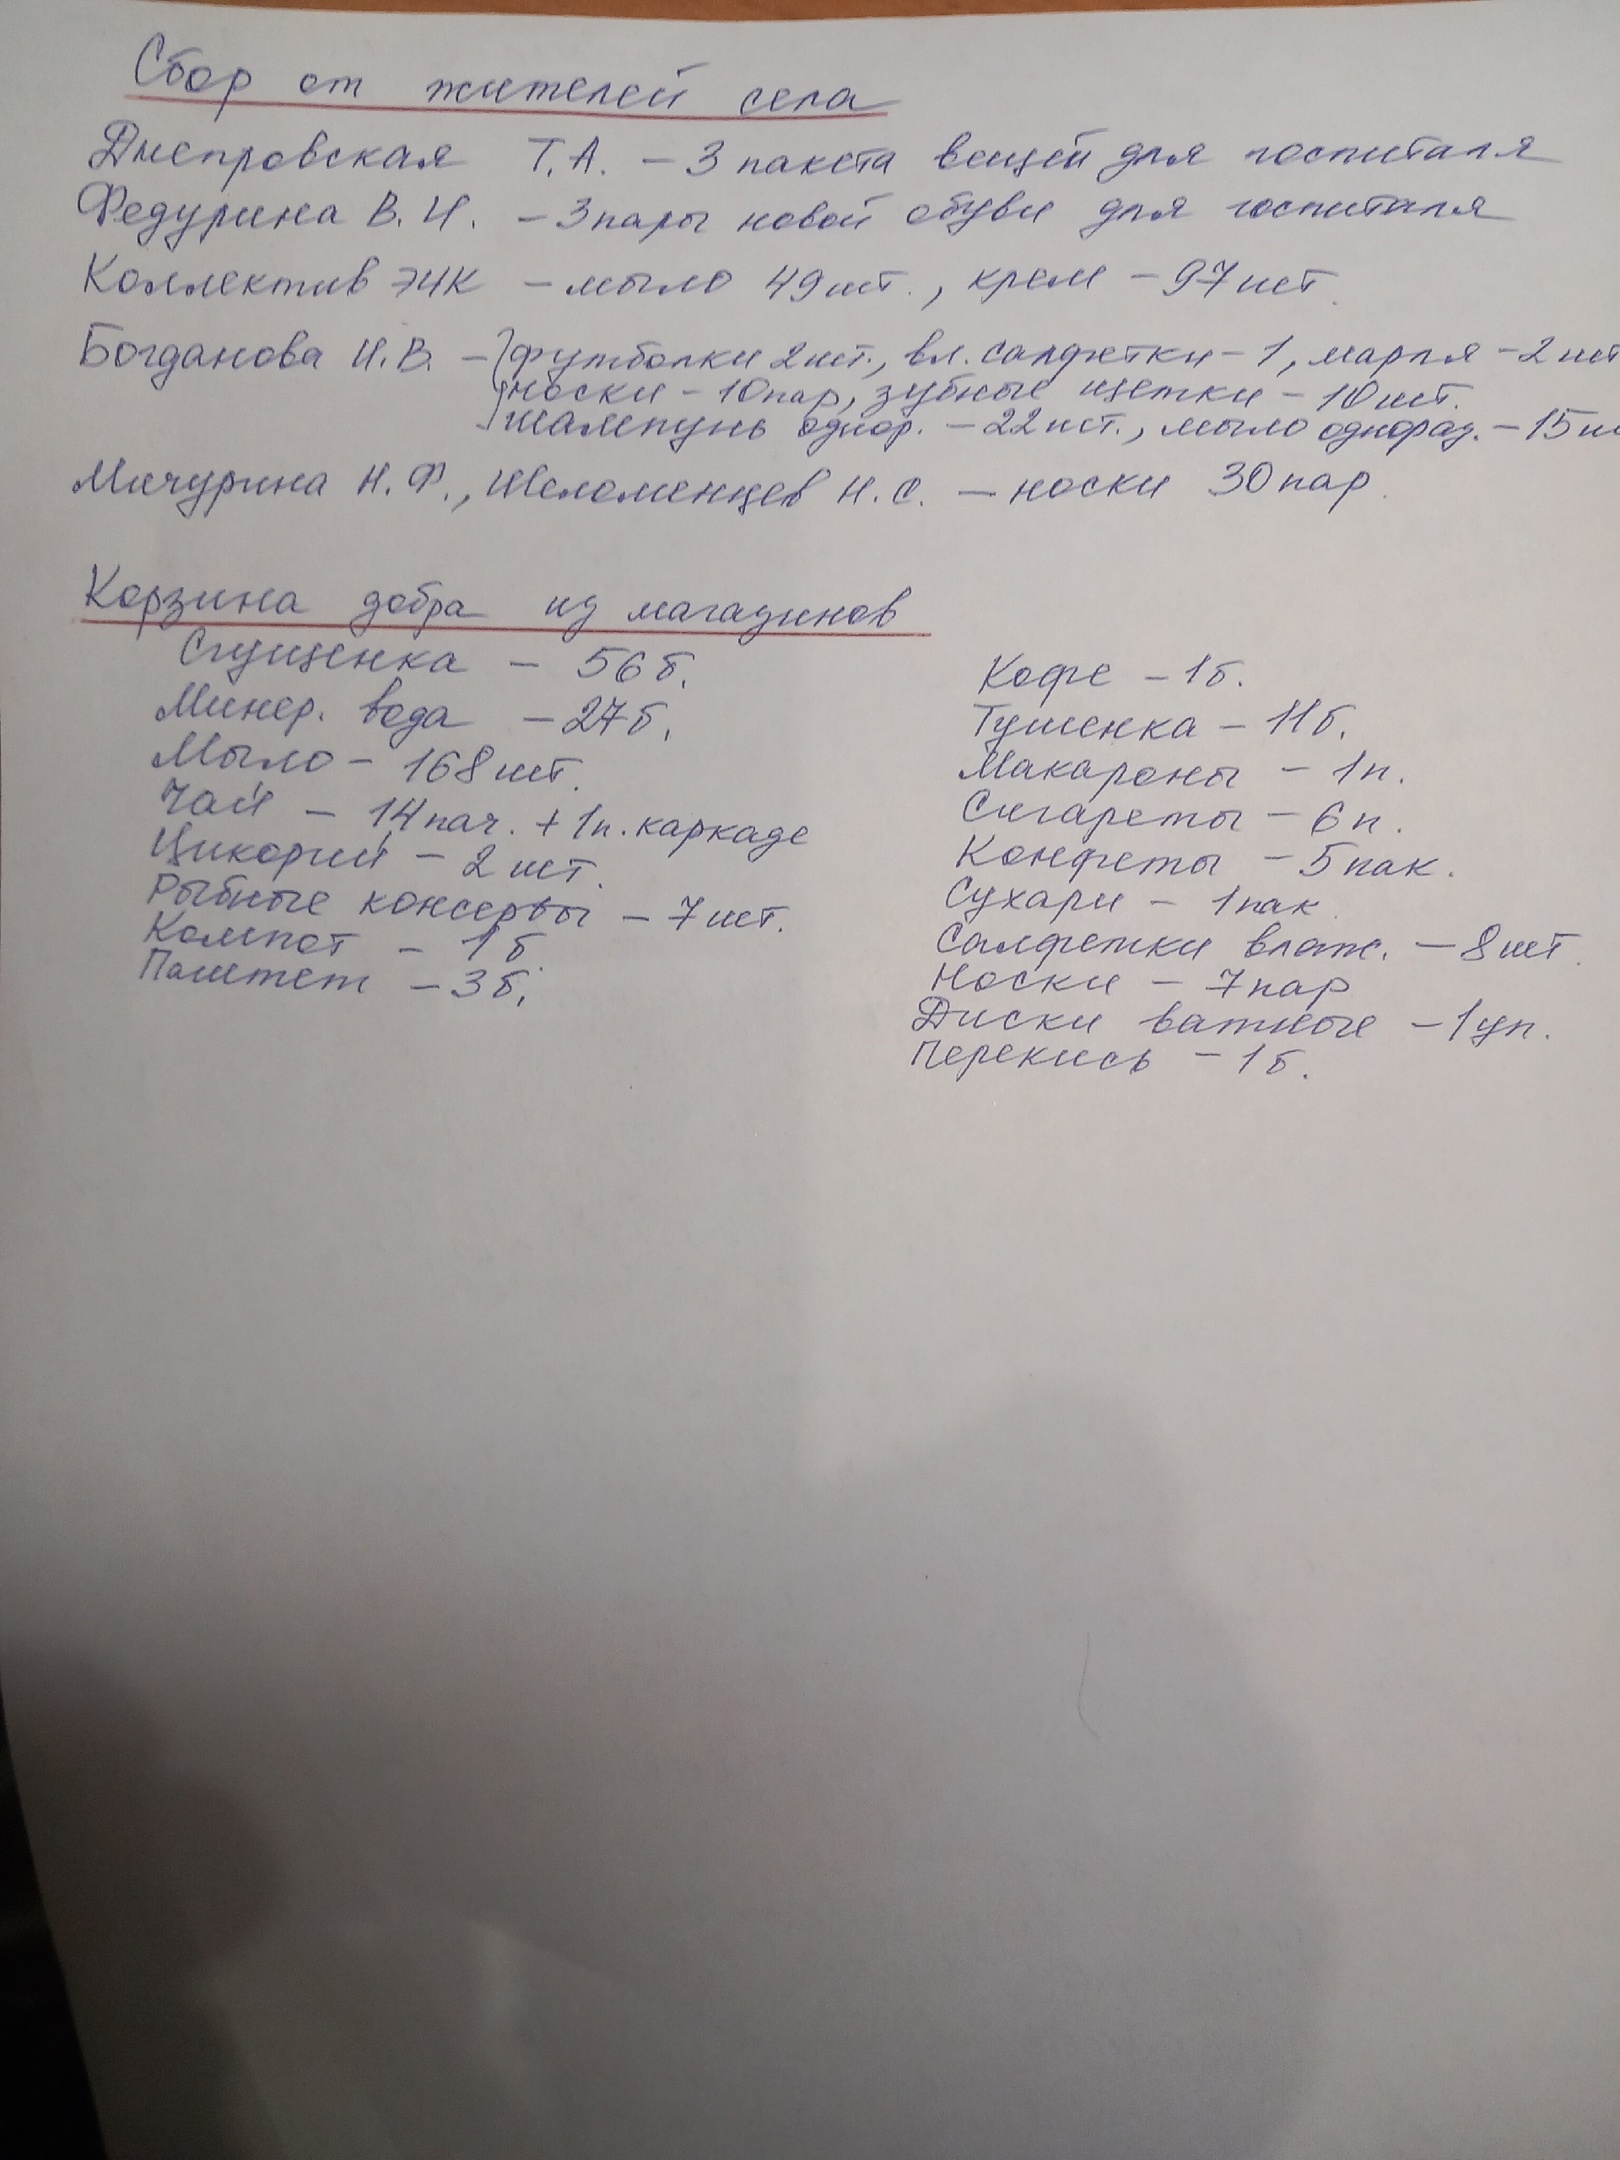 Сбор от жителей села
Днепровская Т.А. – 3 пакета вещей для госпиталя
Федурина В.И. – 3 пары новой обуви для госпиталя
Коллектив – мыло 49 шт., крем – 97 шт.
Богданова И.В. – футболки 2 шт., вл. салфетки – 1, марля – 2 шт
носки – 10 пар, зубные щетки – 10 шт.
шампунь однор. – 22 шт., мыло однораз. – 15
Мичурина Н.Ф., Шеломенцев Н.С. – носки 30 пар.
Корзина добра из магазинов
Сгущенка – 56 б.
Минер. вода – 27 б.
Мыло – 168 шт.
Чай – 14 пач. + 1 п. каркаде
Цикорий – 2 шт.
Рыбные консервы – 7 шт.
Компот – 1 б.
Паштет – 3 б.
Кофе – 1 б.
Тушенка – 11 б.
Макароны – 1 п.
Сигареты – 6 п.
Конфеты – 5 пак.
Сухари – 1 пак.
Салфетки влаж. – 8 шт.
Носки – 7 пар
Диски ватные – 1 уп.
Перекись – 1 б.